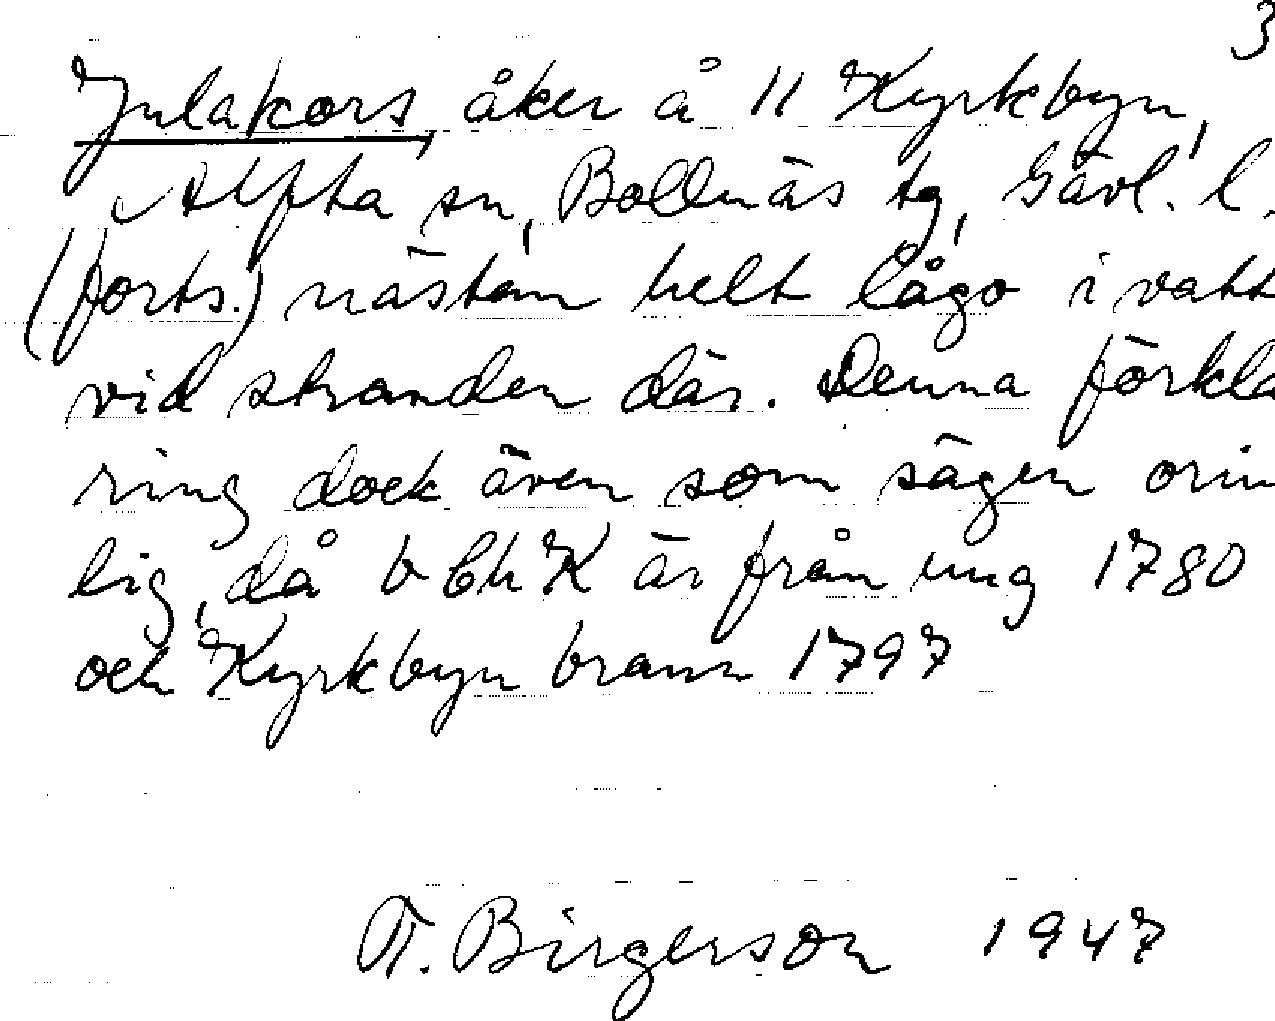 3
Julakors, åker å 11 Kyrkbyn,
Alfta sn, Bollnäs tg, Gävl. l.
(forts.) nästan helt lågo i vatt
vid stranden där. Denna förkla
ring dock även som sägen orim
lig, då är från ung 1780
och Kyrkbyn brann 1797
Birgerson 1947